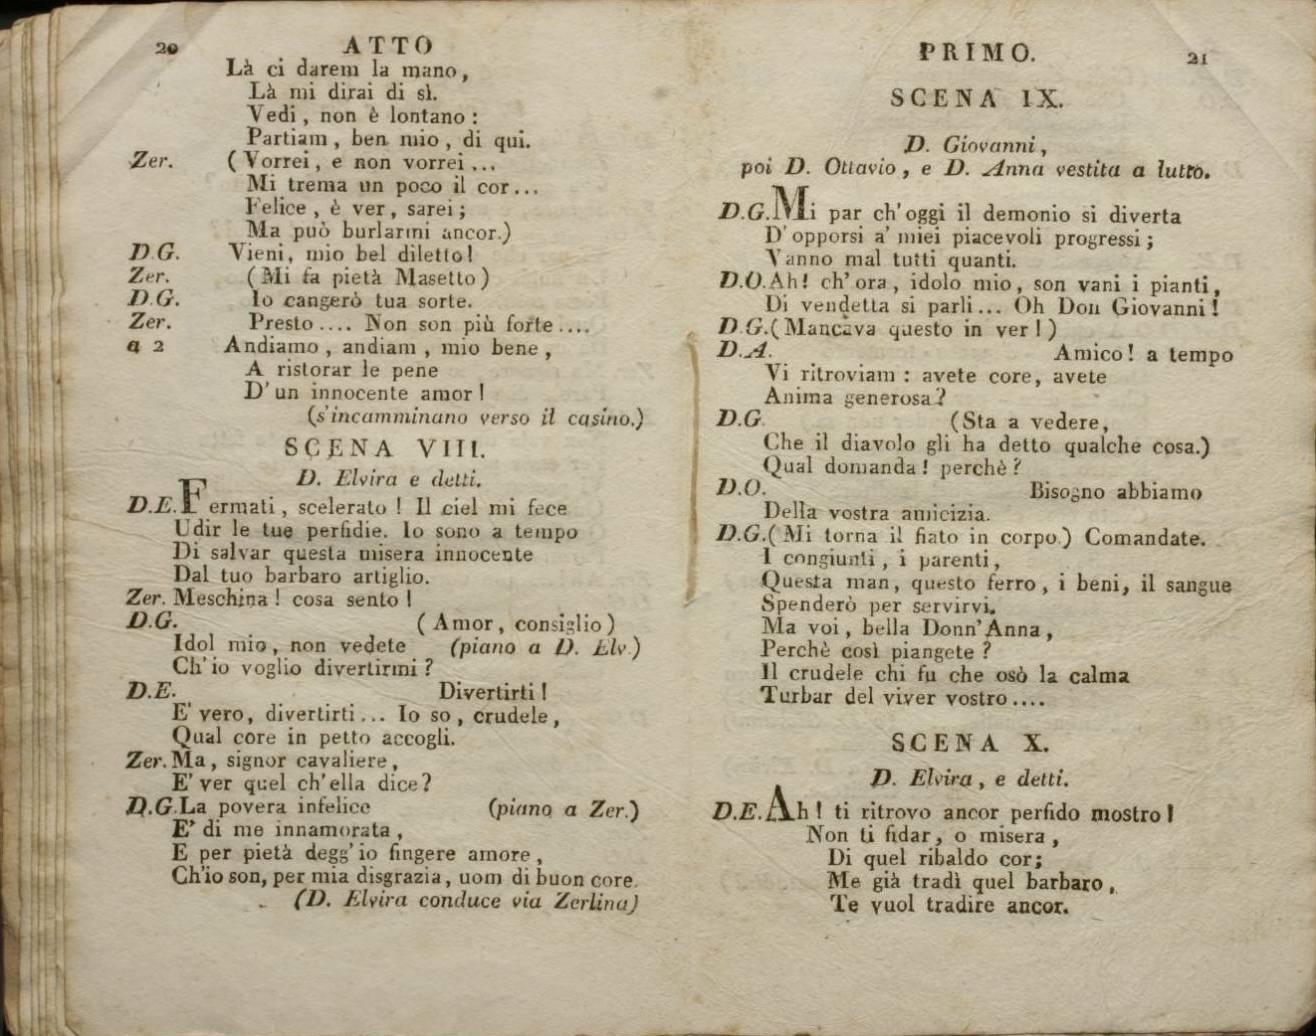 20 ATTO
Là ci darem la mano,
Là mi dirai di sì.
Vedi, non è lontano:
Partiam, ben mio, di qui.
Zer. (Vorrei, e non vorrei...
Mi trema un poco il cor...
Felice, è ver, sarei;
Ma può burlarmi ancor.)
D.G. Vieni, mio bel diletto!
Zer. (Mi fa pietà Masetto)
D.G. Io cangerò tua sorte.
Zer. Presto.... Non son più forte....
a 2 Andiamo, andiam, mio bene,
A ristorar le pene
D'un innocente amor!
(s'incamminano verso il casino.)
SCENA VIII.
D. Elvira e detti.
D.E. Fermati, scelerato! Il ciel mi fece
Udir le tue perfidie. Io sono a tempo
Di salvar questa misera innocente
Dal tuo barbaro artiglio.
Zer. Meschina! cosa sento!
D.G. (Amor, consiglio)
Idol mio, non vedete (piano a D. Elv.)
Ch'io voglio divertirmi?
D.E. Divertirti!
E' vero, divertirti... Io so, crudele,
Qual core in petto accogli.
Zer. Ma, signor cavaliere,
E' ver quel ch'ella dice?
D.G. La povera infelice (piano a Zer.)
E' di me innamorata,
E per pietà degg'io fingere amore,
Ch'io son, per mia disgrazia, uom di buon core.
(D. Elvira conduce via Zerlina)
PRIMO. 21
SCENA IX.
D. Giovanni,
poi D. Ottavio, e D. Anna vestita a lutto.
D.G. Mi par ch'oggi il demonio si diverta
D'opporsi a' miei piacevoli progressi;
Vanno mal tutti quanti.
D.O. Ah! ch'ora, idolo mio, son vani i pianti,
Di vendetta si parli... Oh Don Giovanni!
D.G. (Mancava questo in ver!)
D.A. Amico! a tempo
Vi ritroviam: avete core, avete
Anima generosa?
D.G (Sta a vedere,
Che il diavolo gli ha detto qualche cosa.)
Qual domanda! perchè?
D.O. Bisogno abbiamo
Della vostra amicizia.
D.G. (Mi torna il fiato in corpo.) Comandate.
I congiunti, i parenti,
Questa man, questo ferro, i beni, il sangue
Spenderò per servirvi.
Ma voi, bella Donn'Anna,
Perchè così piangete?
Il crudele chi fu che osò la calma
Turbar del viver vostro....
SCENA X.
D. Elvira, e detti.
D.E. Ah! ti ritrovo ancor perfido mostro!
Non ti fidar, o misera,
Di quel ribaldo cor;
Me già tradì quel barbaro,
Te vuol tradire ancor.